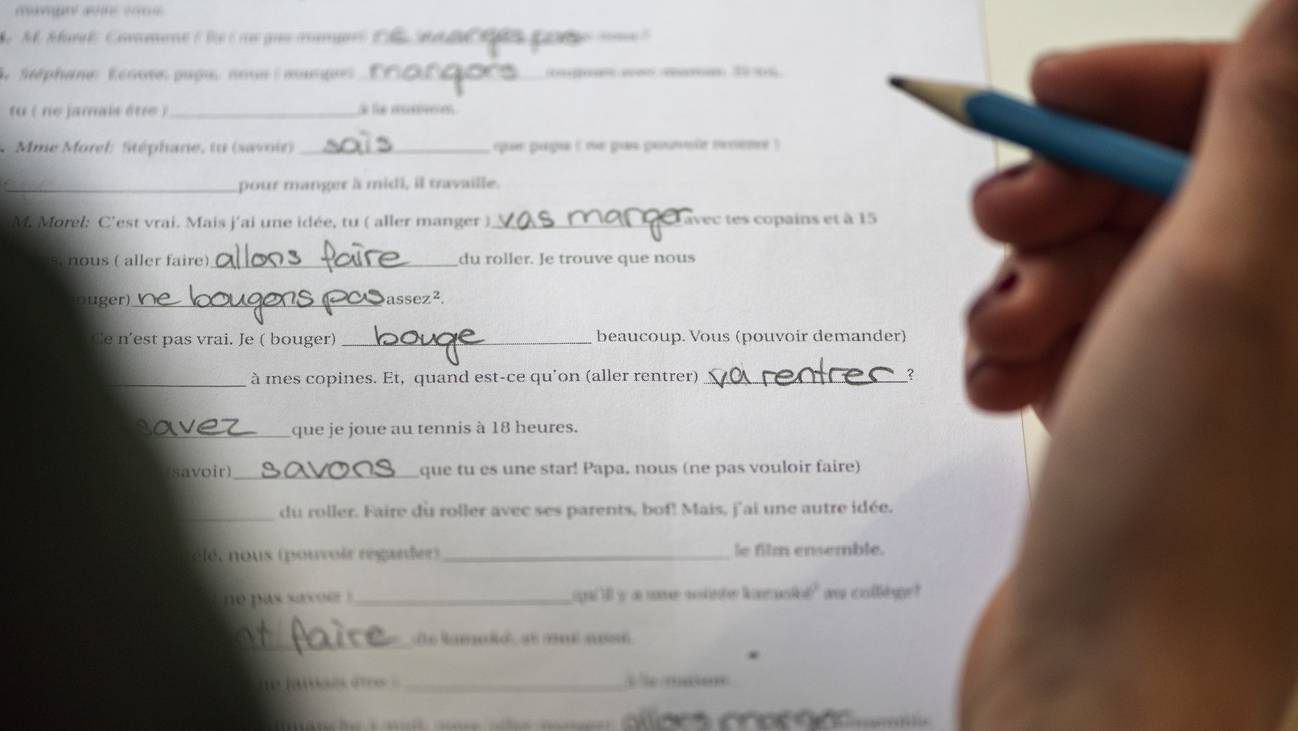 manger avec vous.
M. Morel: Comment? Tu ( ne pas manger) ne manges pas
Stéphane: Ecoute, papa, nous ( manger) mangons toujours avec maman. Et toi,
tu ( ne jamais être ) ____ à la maison.
Mme Morel: Stéphane, tu (savoir) sais que papa ( ne pas pouvoir rentrer )
____ pour manger à midi, il travaille.
M. Morel: C'est vrai. Mais j'ai une idée, tu ( aller manger ) vas manger avec tes copains et à 15
nous ( aller faire) allons faire du roller. Je trouve que nous
ouger) ne bougons pas assez².
Ce n'est pas vrai. Je ( bouger) bouge beaucoup. Vous (pouvoir demander)
____ à mes copines. Et, quand est-ce qu'on (aller rentrer) va rentrer ?
savez que je joue au tennis à 18 heures.
(savoir) savons que tu es une star! Papa, nous (ne pas vouloir faire)
____ du roller. Faire du roller avec ses parents, bof! Mais, j'ai une autre idée.
élé, nous (pouvoir regarder) ____ le film ensemble.
ne pas savoir ) ____ qu'il y a une soirée karaoké³ au collège?
nt faire du karaoké, et moi aussi.
ne jamais être ) ____ à la maison.
allons manger ensemble